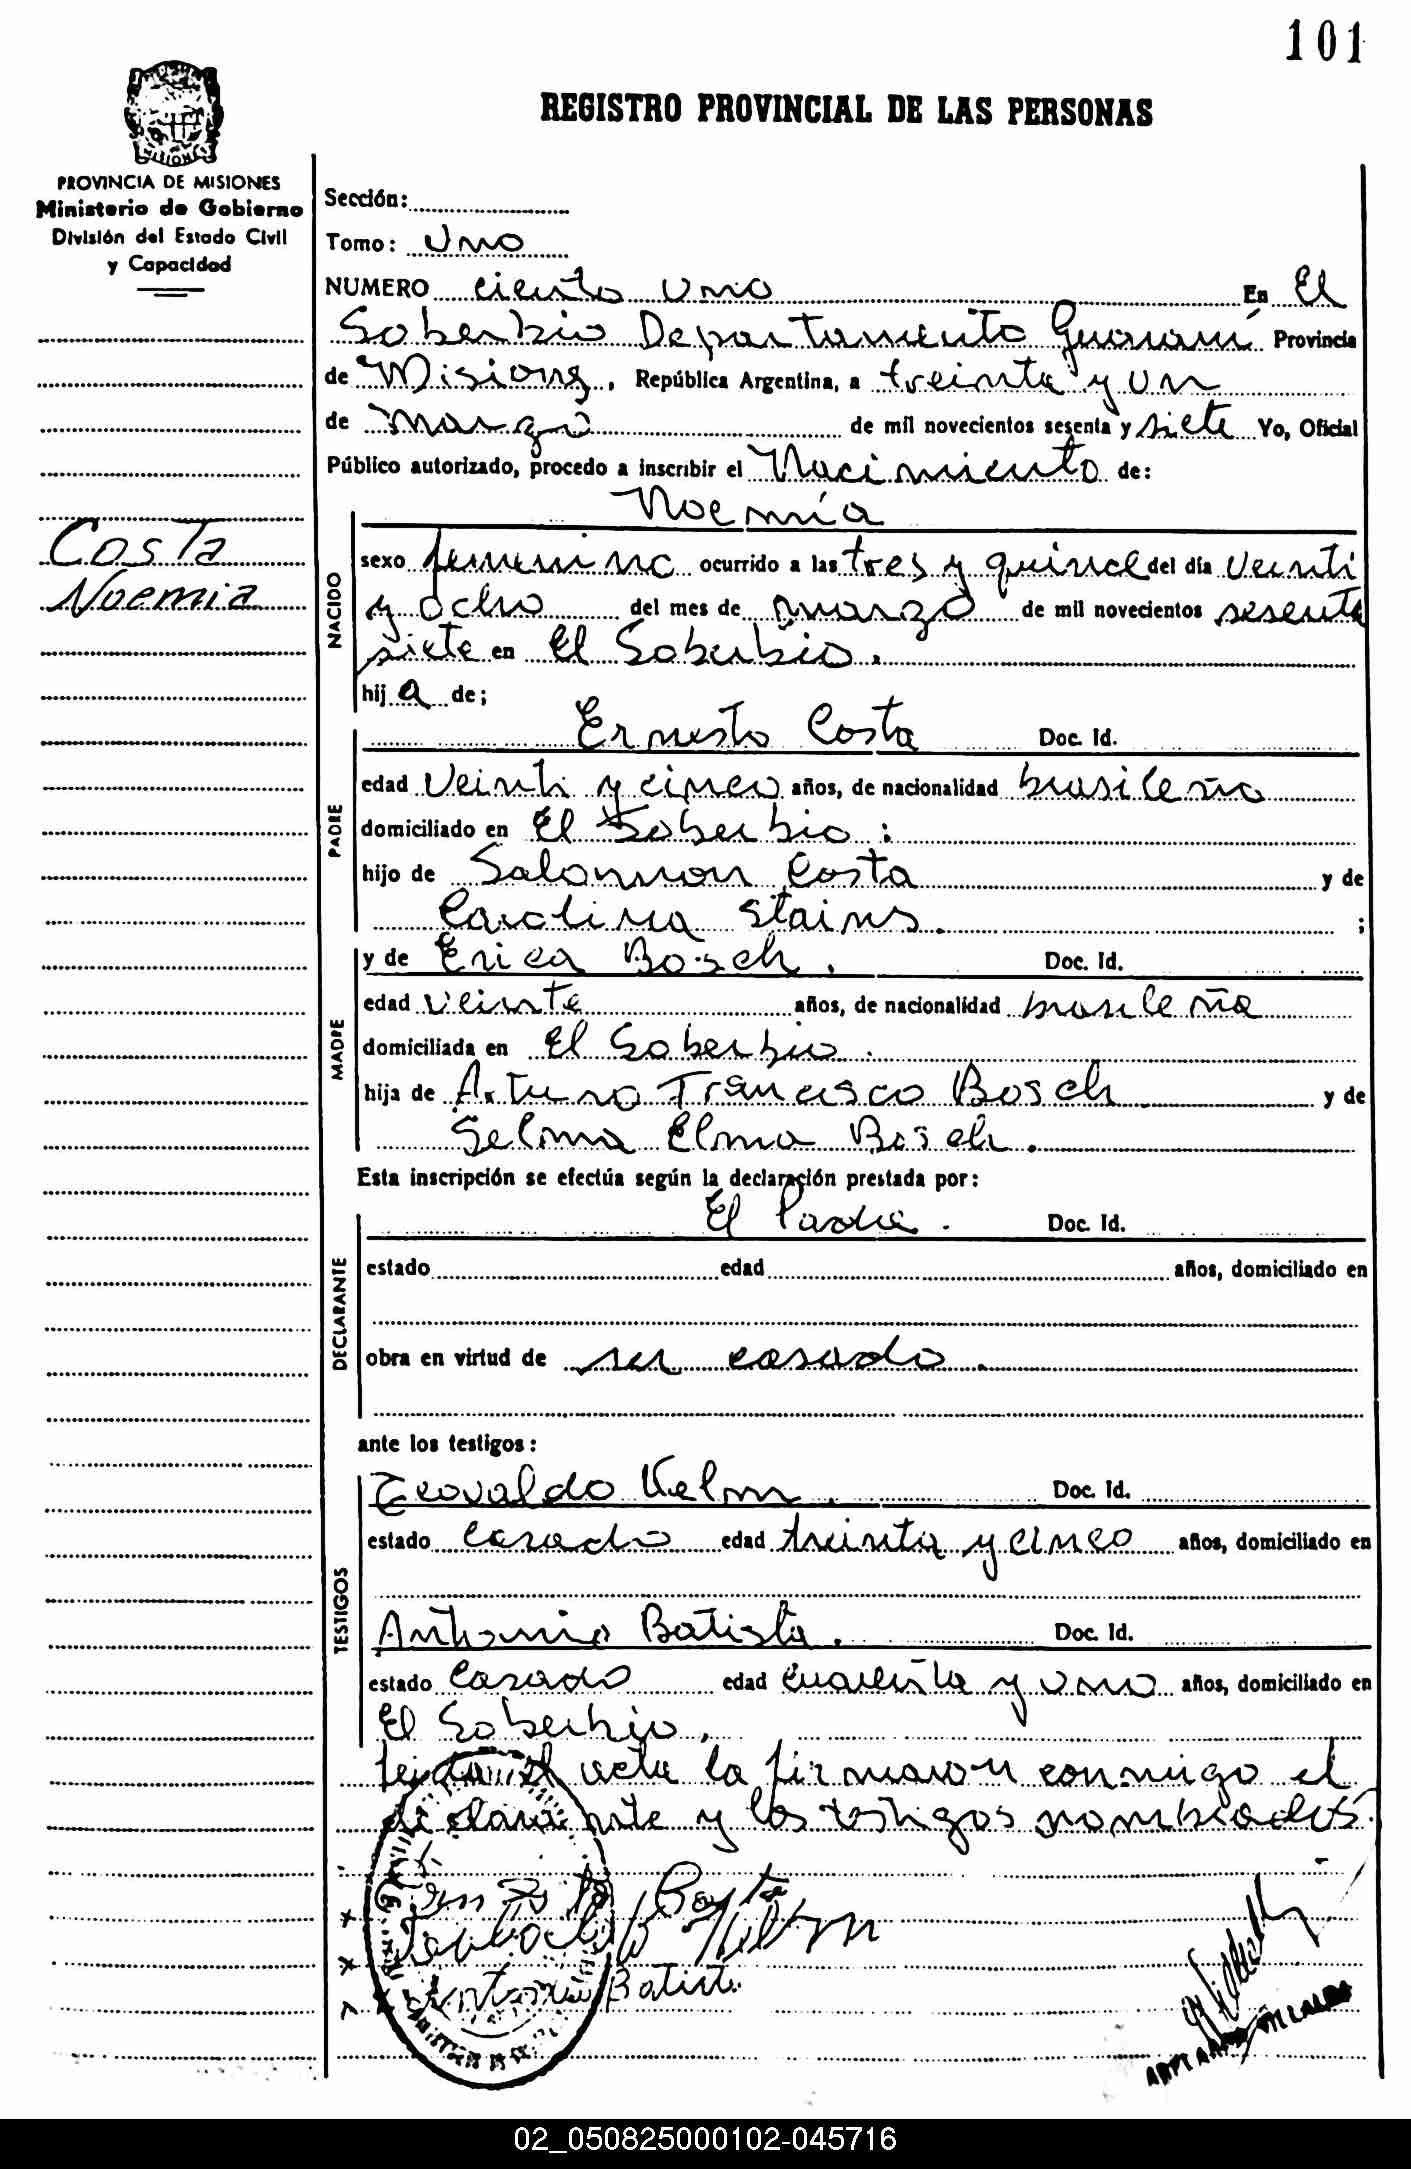 101
REGISTRO PROVINCIAL DE LAS PERSONAS
MISIONES
PROVINCIA DE MISIONES
Ministerio de Gobierno
División del Estado Civil
y Capacidad
Costa
Noemia
Sección:
Tomo: Uno
NUMERO ciento Uno En El
Soberbio Departamento Guaraní Provincia
de Misiones, República Argentina, a treinta y un
de marzo de mil novecientos sesenta y siete Yo, Oficial
Público autorizado, procedo a inscribir el Nacimiento de:
Noemía
NACIDO
sexo femenino ocurrido a las tres y quince del día Veinti
y ocho del mes de marzo de mil novecientos sesenta
siete en El Soberbio.
hij a de;
PADRE
Ernesto Costa Doc. Id.
edad Veinti y cinco años, de nacionalidad brasileño
domiciliado en El Soberbio ;
hijo de Salomon Costa y de
Carolina Stains. ;
MADRE
y de Erica Bosch. Doc. Id.
edad veinte años, de nacionalidad brasileña
domiciliada en El Soberbio.
hija de Arturo Francisco Bosch y de
Selma Elma Bosch.
Esta inscripción se efectúa según la declaración prestada por:
DECLARANTE
El Padre. Doc. Id.
estado edad años, domiciliado en
obra en virtud de ser casado.
ante los testigos:
TESTIGOS
Teovaldo Kelm. Doc. Id.
estado casado edad treinta y cinco años, domiciliado en
Antonio Batista. Doc. Id.
estado Casado edad cuarenta y uno años, domiciliado en
El Soberbio.
leida el acta la firmaron conmigo el
declarante y los testigos nombrados.
Antonio Batista
VILLALBA
02_050825000102-045716